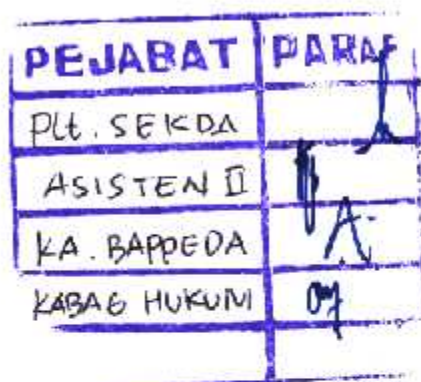 PEJABAT PARAF
Plt. SEKDA
ASISTEN II
KA. BAPPEDA
KABAG HUKUM